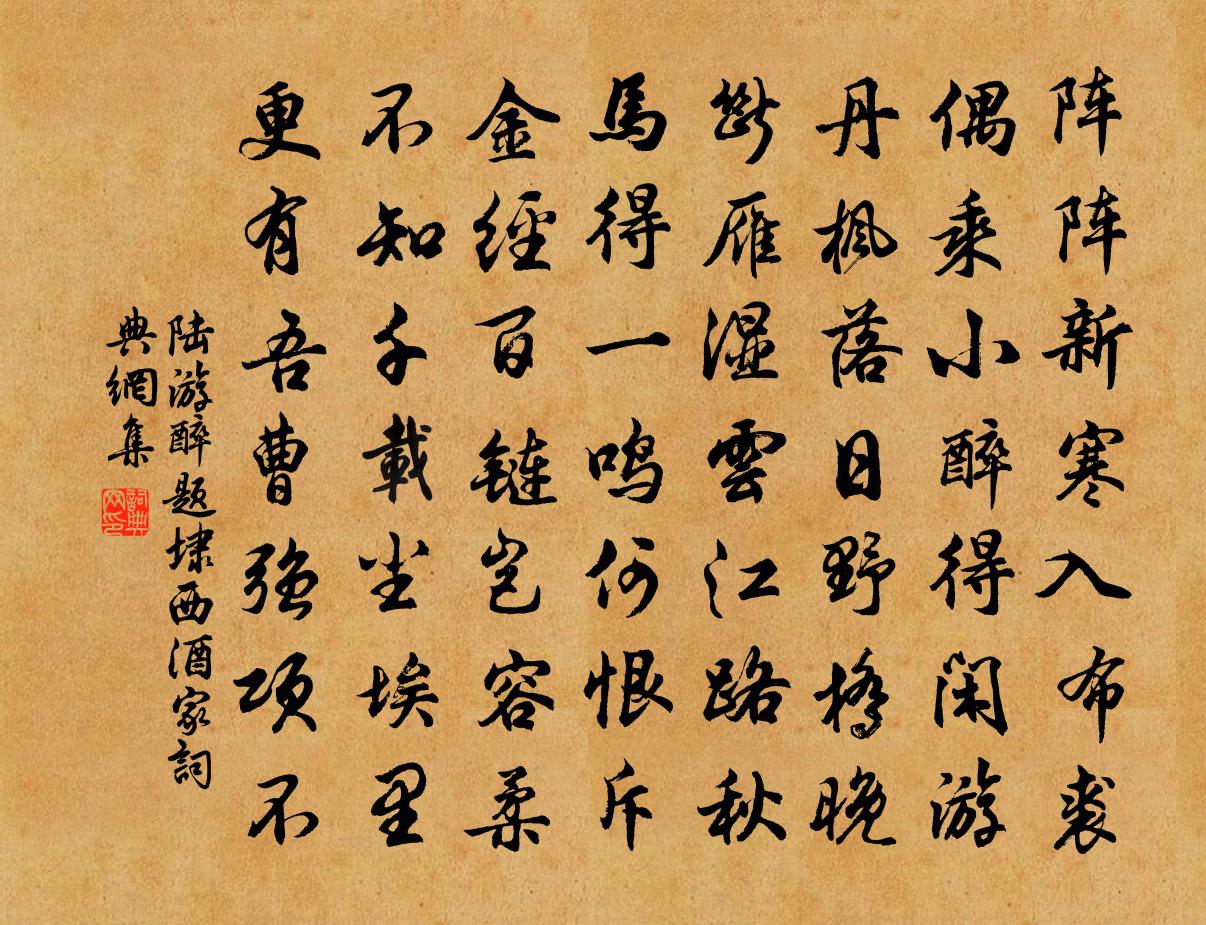 阵阵新寒入布裘
偶乘小醉得闲游
丹枫落日野橋晚
断雁湿雲江路秋
馬得一鸣何恨斥
金經百链岂容柔
不知千載尘埃里
更有吾曹强项不
陆游醉题埭西酒家詞
典網集
詞典网印